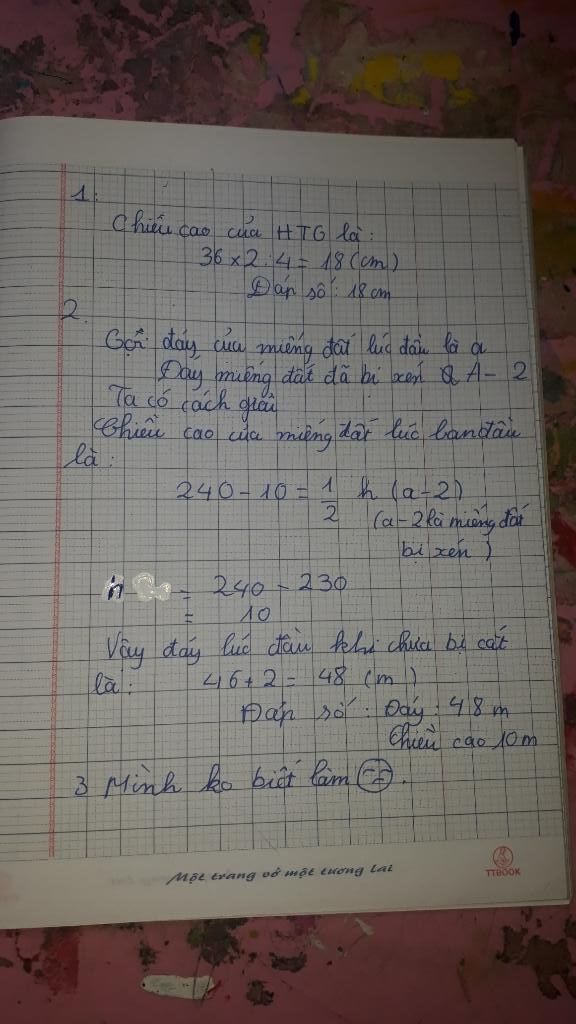 1:
Chiều cao của HTG là:
36 x 2 : 4 = 18 (cm)
Đáp số: 18 cm
2.
Gọi: đáy của miếng đất lúc đầu là a
Đáy miếng đất đã bị xén A - 2
Ta có cách giải
Chiều cao của miếng đất lúc ban đầu
là:
240 - 10 = 1/2 h (a - 2)
(a - 2 là miếng đất
bị xén)
h = 240 - 230
= 10
Vậy đáy lúc đầu khi chưa bị cắt
là: 46 + 2 = 48 (m)
Đáp số: Đáy: 48 m
Chiều cao 10m
3 Mình ko biết làm
Một trang vở một tương lai
TTBOOK